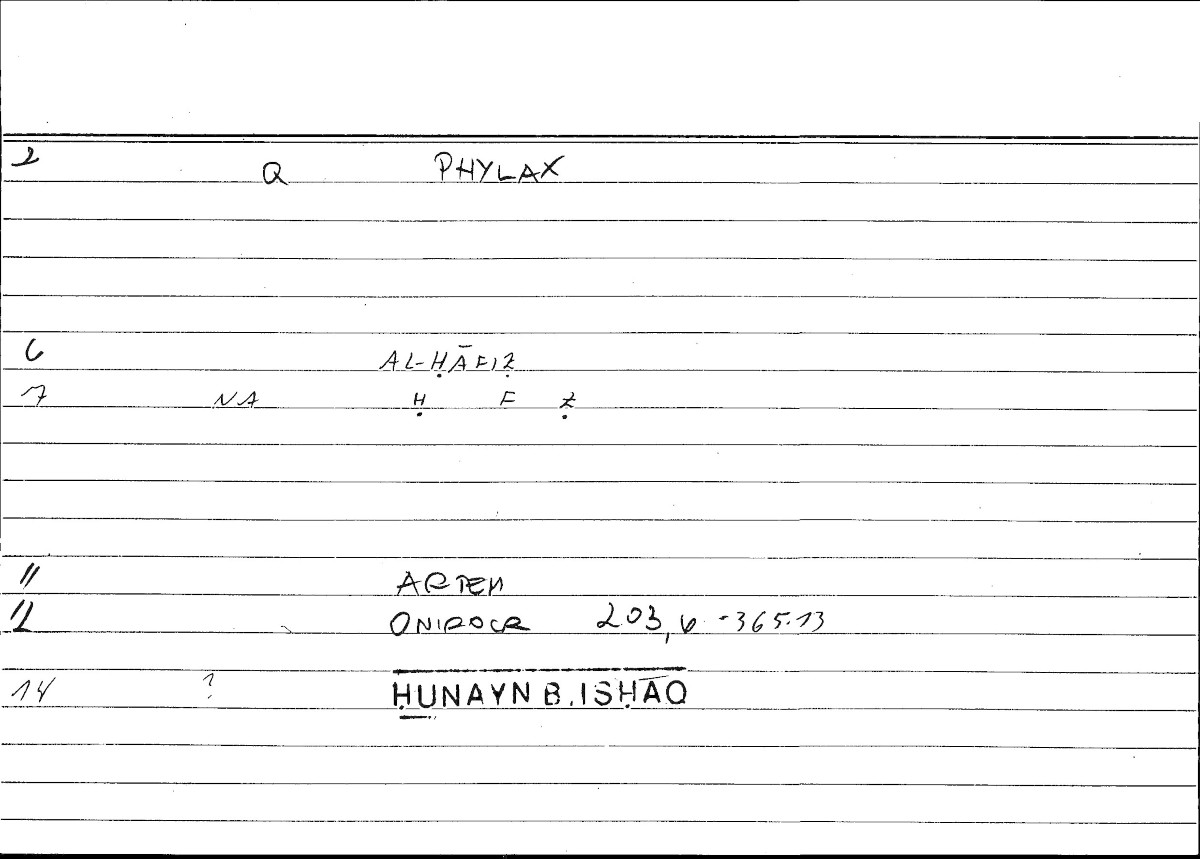 2 Q PHYLAX
6 AL-ḤĀFIẒ
7 NA Ḥ F Ẓ
11 ARTEM
12 ONIROCR 203,6-365.13
14 ? ḤUNAYN B. ISḤĀQ